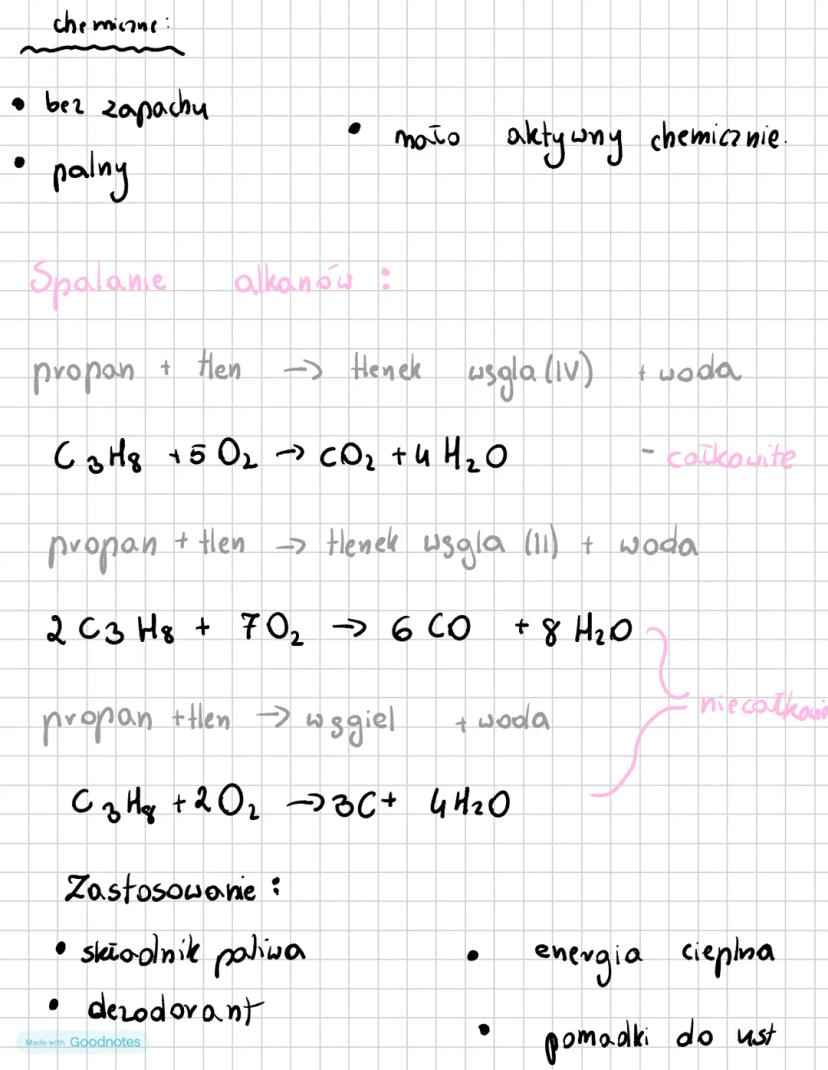 chemiczne:
• bez zapachu
• mało aktywny chemicznie.
• palny
Spalanie alkanów:
propan + tlen → tlenek węgla (IV) + woda
C₃H₈ + 5 O₂ → CO₂ + 4 H₂O - całkowite
propan + tlen → tlenek węgla (II) + woda
2 C₃H₈ + 7 O₂ → 6 CO + 8 H₂O
propan + tlen → węgiel + woda
niecałkowi
C₃H₈ + 2 O₂ → 3C + 4H₂O
Zastosowanie:
• składnik paliwa
• energia cieplna
• dezodorant
• pomadki do ust
Made with Goodnotes